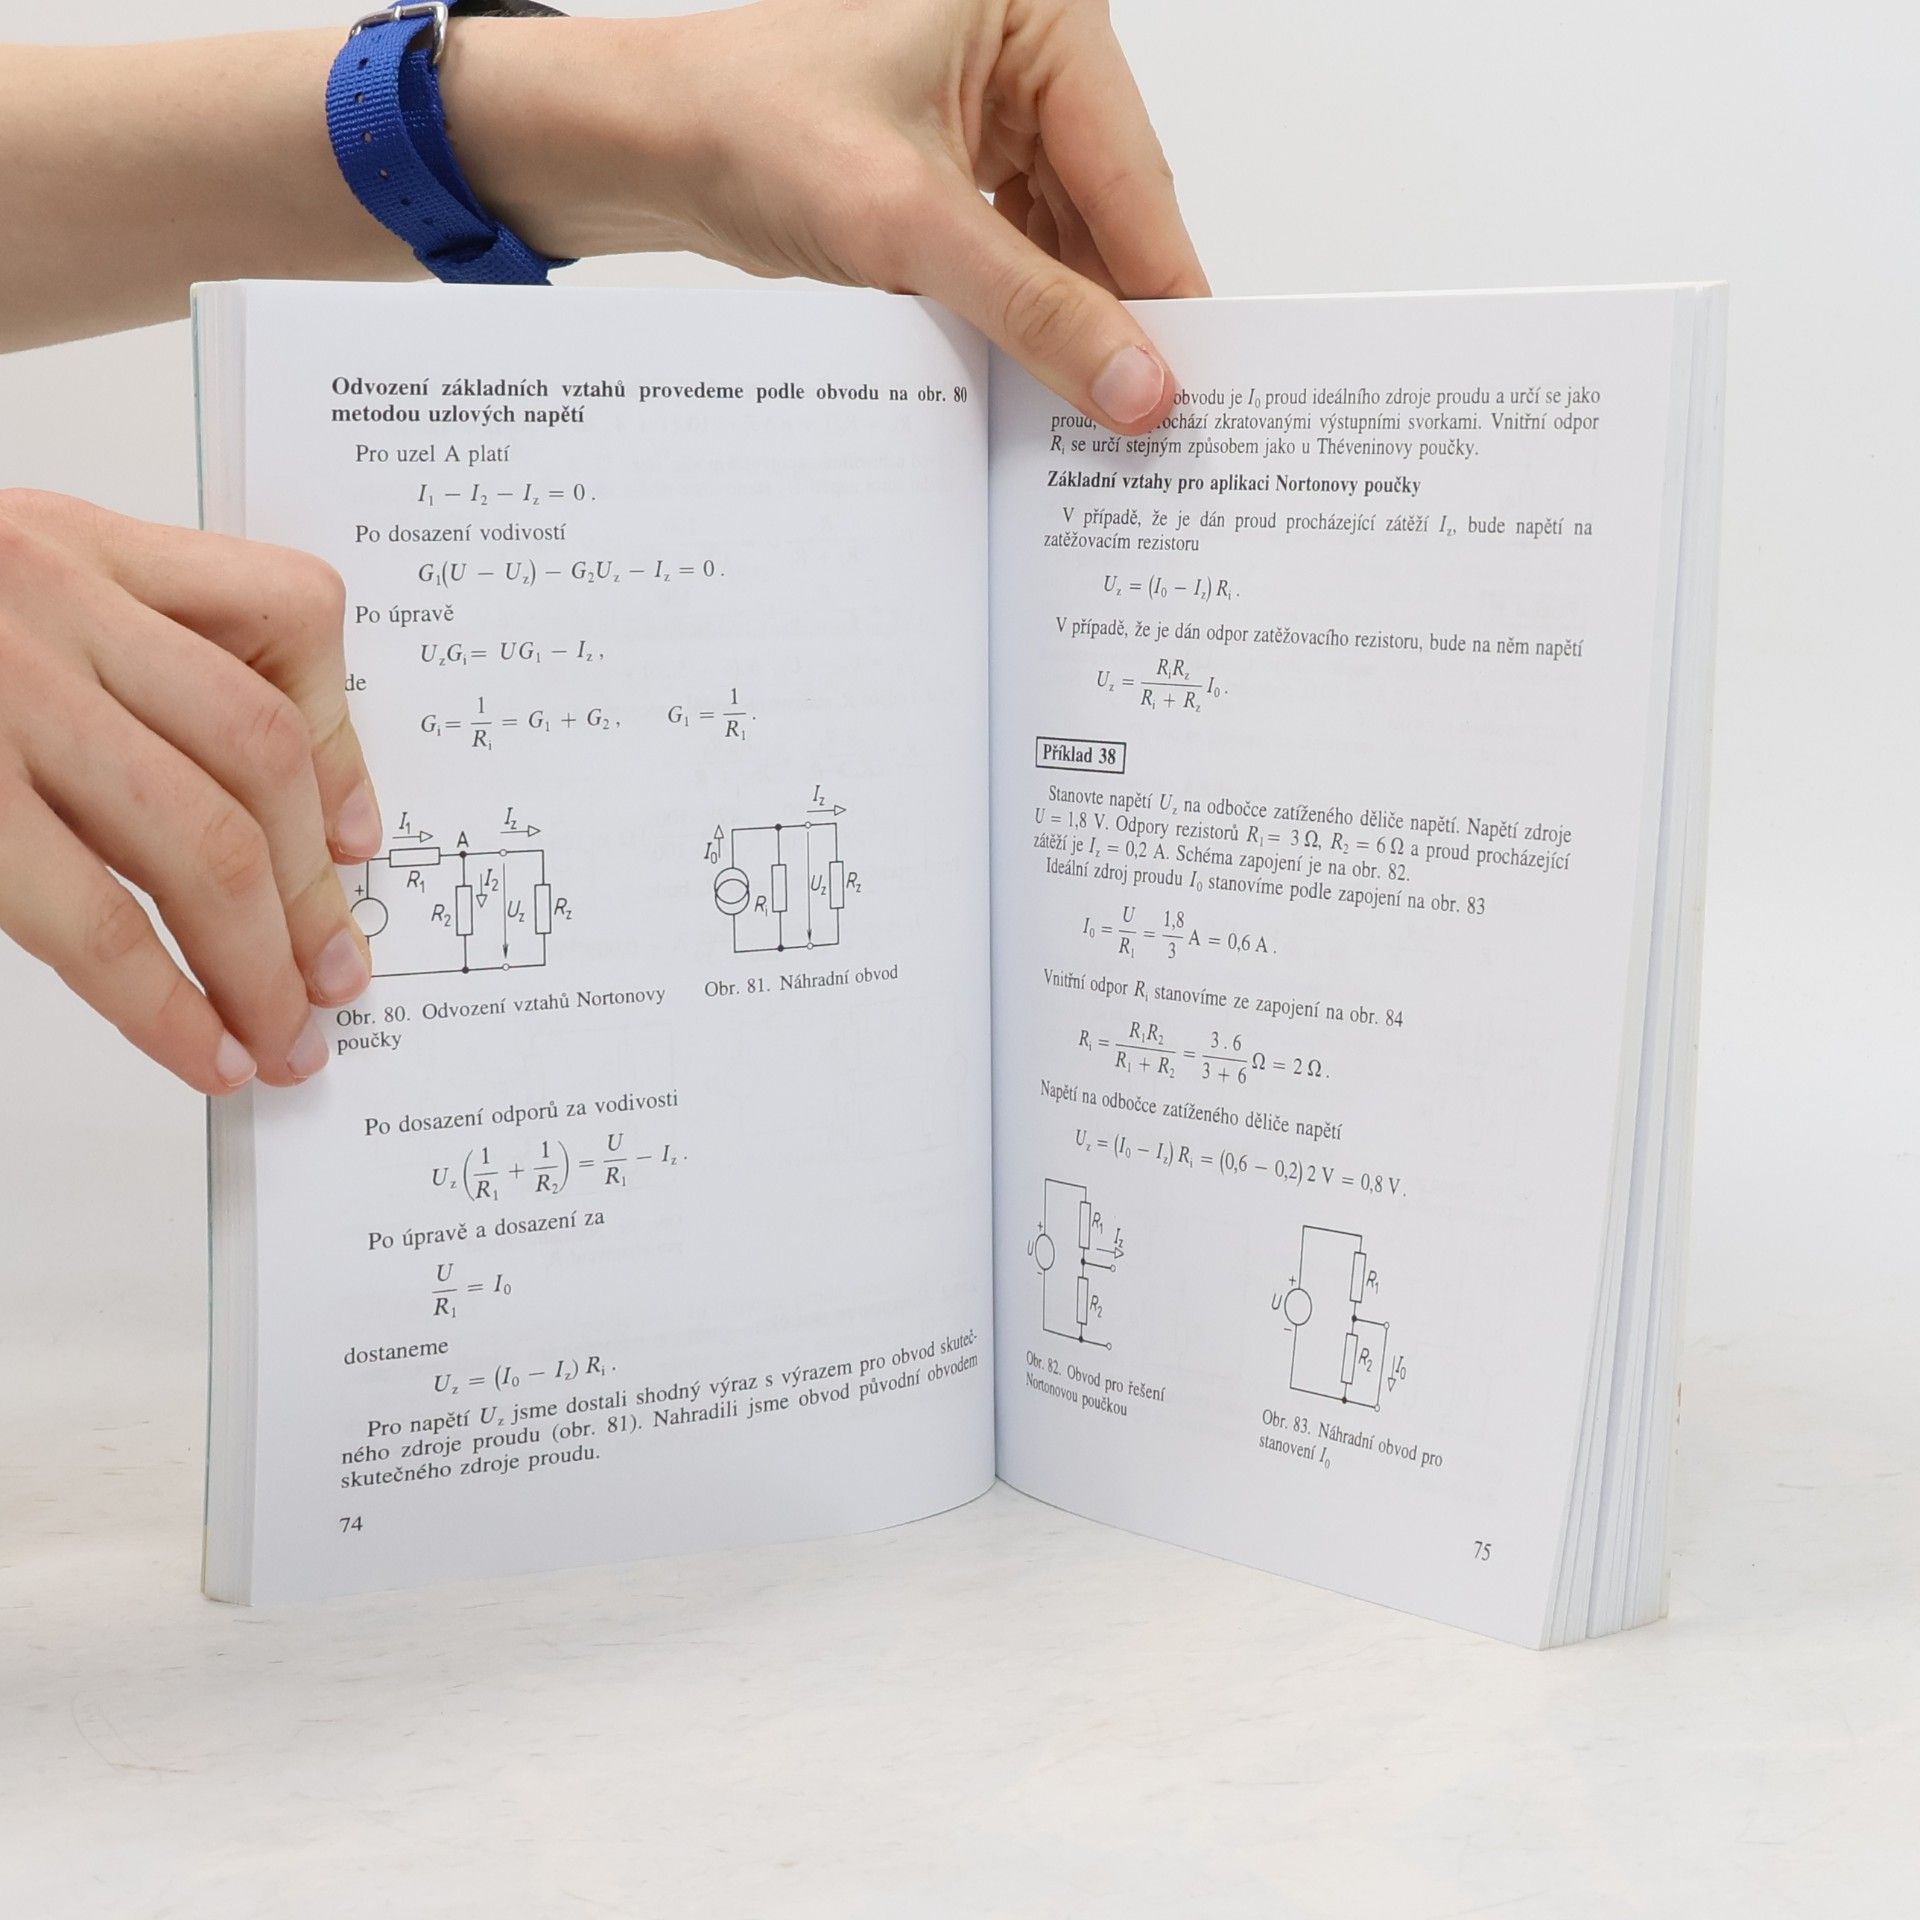 Odvození základních vztahů provedeme podle obvodu na obr. 80
metodou uzlových napětí
Pro uzel A platí
I₁ − I₂ − I_z = 0 .
Po dosazení vodivostí
G₁(U − U_z) − G₂U_z − I_z = 0 .
Po úpravě
U_zG_i = UG₁ − I_z ,
de
G_i = 1/R_i = G₁ + G₂ , G₁ = 1/R₁ .
I₁ A I_z
R₁
+ R₂ I₂ U_z R_z
I_z
I₀ R_i U_z R_z
Obr. 80. Odvození vztahů Nortonovy
poučky
Obr. 81. Náhradní obvod
Po dosazení odporů za vodivosti
U_z (1/R₁ + 1/R₂) = U/R₁ − I_z .
Po úpravě a dosazení za
U/R₁ = I₀
dostaneme
U_z = (I₀ − I_z) R_i .
Pro napětí U_z jsme dostali shodný výraz s výrazem pro obvod skuteč-
ného zdroje proudu (obr. 81). Nahradili jsme obvod původní obvodem
skutečného zdroje proudu.
74
obvodu je I₀ proud ideálního zdroje proudu a určí se jako
proud, zkratovanými výstupními svorkami. Vnitřní odpor
R_i se určí stejným způsobem jako u Théveninovy poučky.
Základní vztahy pro aplikaci Nortonovy poučky
V případě, že je dán proud procházející zátěží I_z, bude napětí na
zatěžovacím rezistoru
U_z = (I₀ − I_z) R_i .
V případě, že je dán odpor zatěžovacího rezistoru, bude na něm napětí
U_z = R_iR_z/(R_i + R_z) I₀ .
Příklad 38
Stanovte napětí U_z na odbočce zatíženého děliče napětí. Napětí zdroje
U = 1,8 V. Odpory rezistorů R₁ = 3 Ω, R₂ = 6 Ω a proud procházející
zátěží je I_z = 0,2 A. Schéma zapojení je na obr. 82.
Ideální zdroj proudu I₀ stanovíme podle zapojení na obr. 83
I₀ = U/R₁ = 1,8/3 A = 0,6 A .
Vnitřní odpor R_i stanovíme ze zapojení na obr. 84
R_i = R₁R₂/(R₁ + R₂) = 3 . 6/(3 + 6) Ω = 2 Ω .
Napětí na odbočce zatíženého děliče napětí
U_z = (I₀ − I_z) R_i = (0,6 − 0,2) 2 V = 0,8 V .
+ U − R₁ I_z R₂
+ U − R₁ R₂ I₀
Obr. 82. Obvod pro řešení
Nortonovou poučkou
Obr. 83. Náhradní obvod pro
stanovení I₀
75